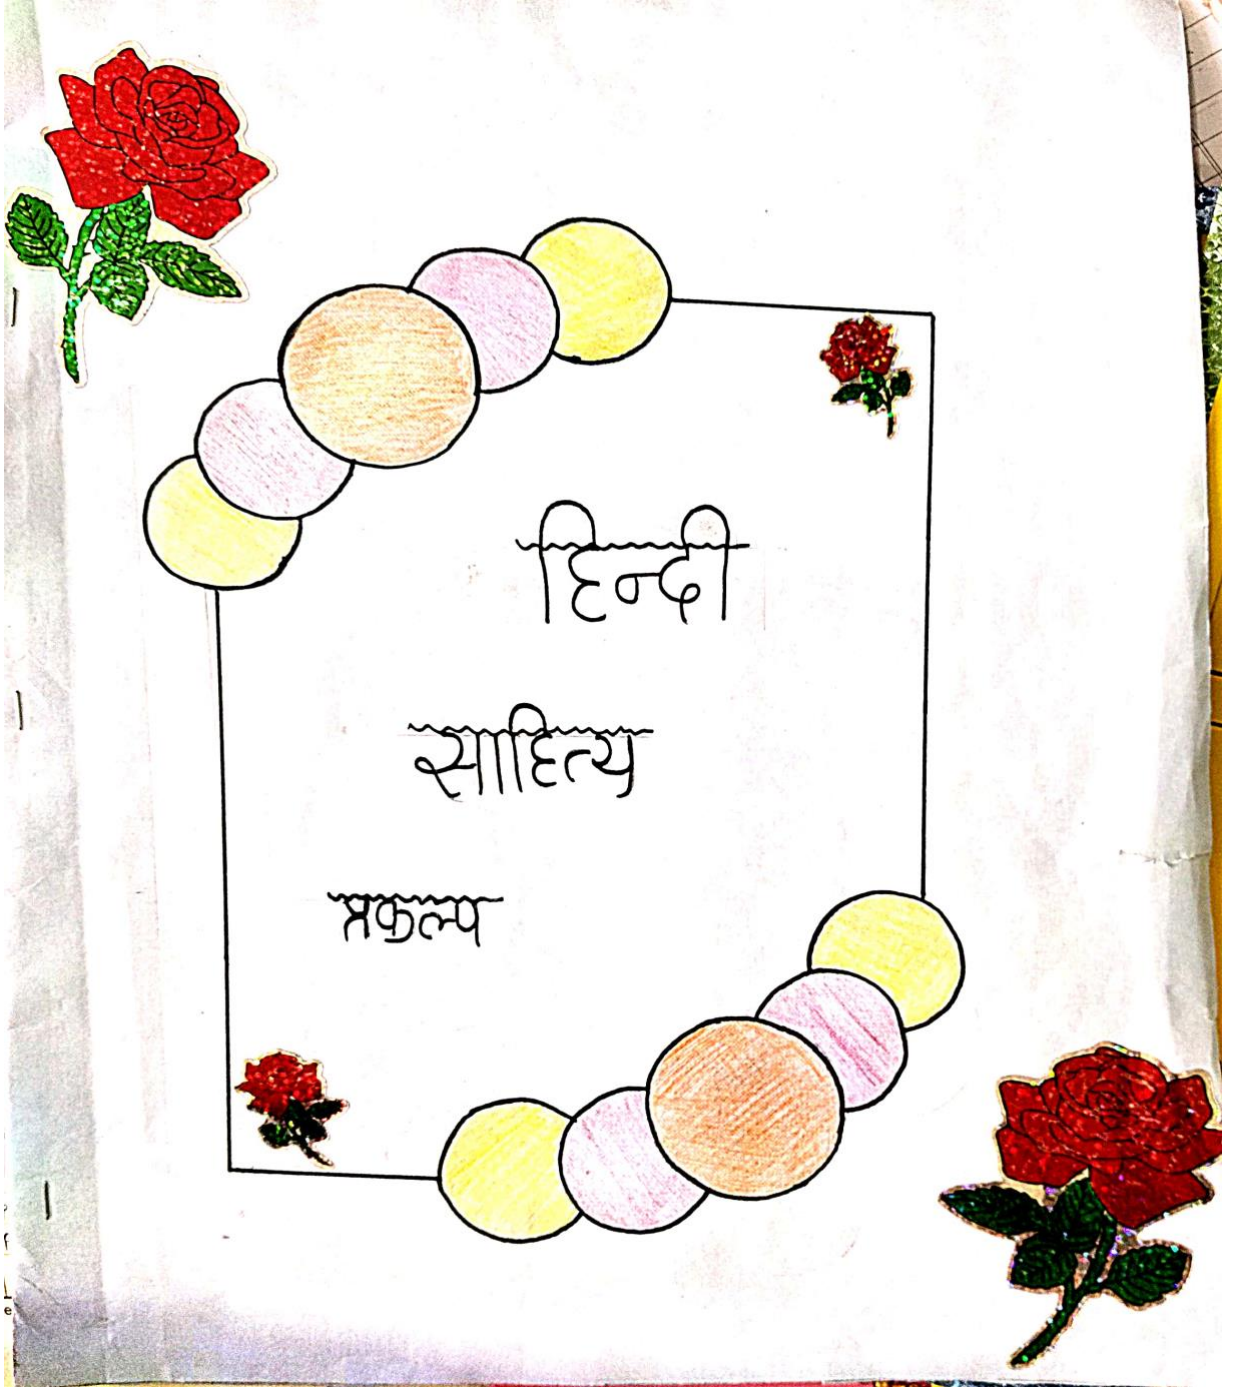 हिन्दी
साहित्य
प्रकल्प